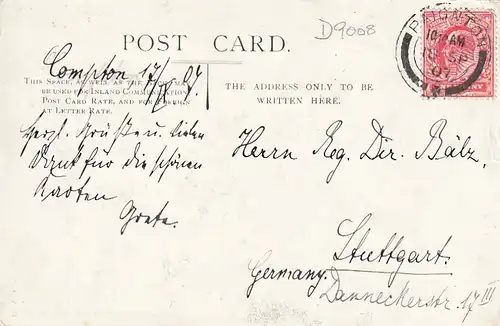 D9008
POST CARD.
PAIGNTON
10 AM
SP
07
Compton 17/IX 07.
THIS SPACE, AS WELL AS THE
BE USED FOR INLAND COMMUNICATION
POST CARD RATE, AND FOR FOREIGN
AT LETTER RATE.
THE ADDRESS ONLY TO BE
WRITTEN HERE.
herzl. Grüße u. lieben
Dank für die schönen
Karten
Grete.
Herrn Reg. Dir. Bälz,
Stuttgart.
Germany.
Danneckerstr. 17 III